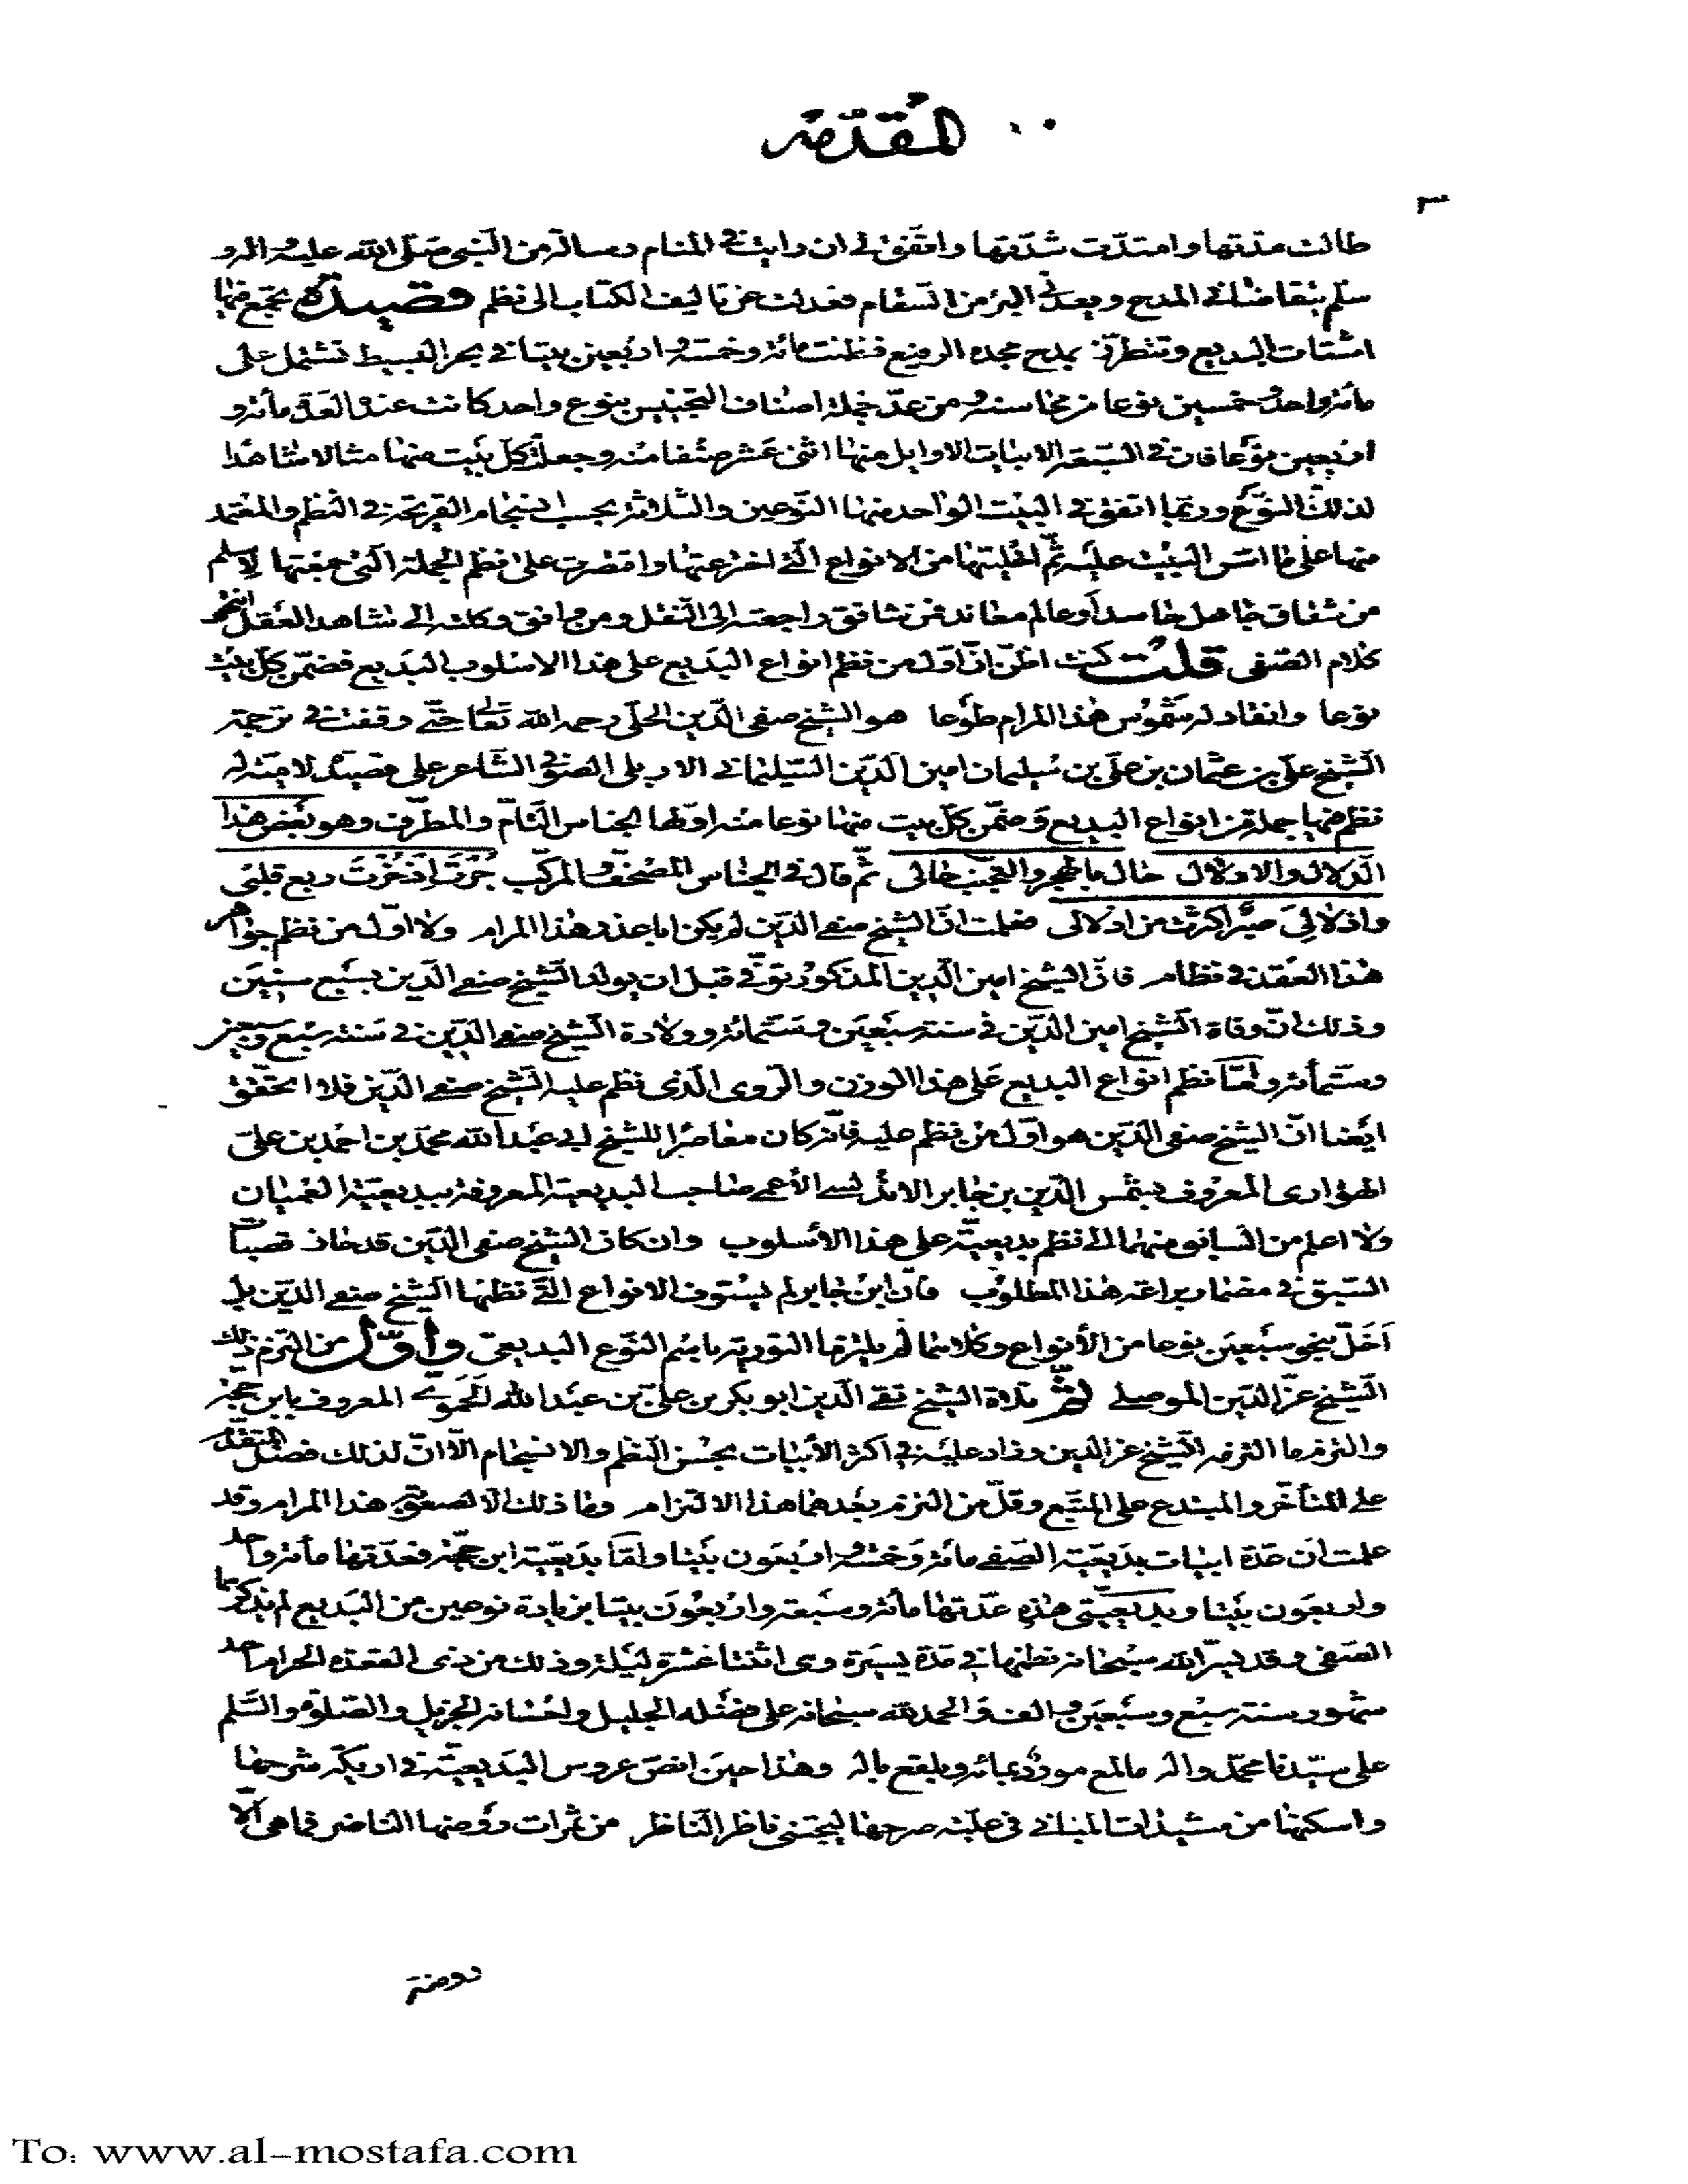 المقدمة
٣
طالت مدتها وامتدّت شدّتها واتّفق لي ان رايت في المنام رسالة من النّبي صَلّى الله عليه واله و
سلم بتقاضاني المدح ويعدني البرء من السّقام فعدلت عن تاليف الكتاب الى نظم قصيدة تجمع فيها
اشتات البديع وتتطرّز بمدح مجده الرفيع فنظمت مائة وخمسة واربعين بيتا في بحر البسيط تشتمل على
مائة واحد وخمسين نوعا من محاسنه ومن عدّ جملة اصناف التجنيس بنوع واحد كانت عنده العدّة مائة و
اربعين نوعًا فان في السبعة الابيات الاوايل منها اثنى عَشر صنفا منه وجعلت كلّ بَيت منها مثالا شاهدا
لذلك النّوع وربّما اتفق في البيت الواحد منها النّوعين والثلاثة بحسب انسجام القريحة في النّظم والمعتمد
منها على ما اسّس البيت عليه ثمّ اخليتها من الانواع الّتي اخترعتها واقتصرت على نظم الجملة الّتي جمعتها لاسلم
من شقاق جاهل حاسد أو عالم معاند فمن شاقق راجعته الى النّقل ومن وافق وكلته الى شاهد العقل انتهى
كلام الصّفى قلت كنت اظنّ انّ اوّل من نظم انواع البَديع على هذا الاسلوب البَديع فضمّن كلّ بيت
نوعا وانقاد له شَمُوس هذا المرام طوعًا هو الشيخ صفى الدّين الحلّي رحمه الله تعالى حتّى وقفت في ترجمة
الشّيخ علي بن عثمان بن علي بن سُليمان امين الدّين السّليماني الاربلى الصوفى الشّاعر على قصيدة لامية له
نظم فيها جملة من انواع البديع وَضمّن كلّ بيت منها نوعا منه اوّلها الجناس التّام والمطرّف وهو بَعْض هذا
الدّلال والادلال حال بالهجر والتّجنّب حالى ثمّ قال في الجناس المصحّف والمركّب جُرْتَ إِذْ حُزْتَ ربع قلبى
واذلالي صبرٌ اكثرت من اذلالى فعلمت انّ الشيخ صفى الدّين لم يكن ابا عذر هذا المرام ولا اوّل من نظم جواهر
هذا العقد في نظام فانّ الشيخ امين الدّين المذكور توفّي قبل ان يولد الشّيخ صفى الدّين بسَبع سنين
وذلك انّ وفاة الشّيخ امين الدّين في سنة سَبْعين وستّمائة وولادة الشّيخ صفى الدّين في سَنة سَبْع وسبعين
وستّمائة وامّا نظم انواع البديع على هذا الوزن والرّوى الّذى نظم عليه الشّيخ صفى الدّين فلا اتحقّق
ايضا انّ الشيخ صفى الدّين هو اوّل من نظم عليه فانّه كان معاصرًا للشيخ ابي عَبد الله محمّد بن احمد بن علىّ
الهوّارى المعرُوف بشمس الدّين بن جابر الاندلسي الأعمى صاحب البديعية المعروفة ببديعيّة العميان
ولا اعلم من السابق منهما الى نظم بديعيّة على هذا الأسلوب وان كان الشيخ صفى الدّين قد حاز قصبات
السّبق في مضمار براعة هذا المطلوب فانّ ابن جابر لم يستوف الانواع الّتي نظمها الشّيخ صفى الدّين بل
اَخَلّ بنحو سَبْعِين نوعا من الأنواع وكلاهما لَم يلتزما التّورية باسم النّوع البديعىّ وأوّل من التزم ذلك
الشّيخ عزّ الدّين الموصلي ثمّ تلاه الشيخ تقى الدّين ابو بكر بن علىّ بن عبد الله الحَمَوي المعروف بابن حجّة
والتزم ما التزمه الشّيخ عزّ الدين وزاد عليه في اكثر الأبيات بحُسْن النّظم والانسجام الّا انّ لذلك فضل المتقدّم
على المتأخّر والمبتدع على المتّبع وقلّ من التزم بعدهما هذا الالتزام وما ذلك الّا لصعوبة هذا المرام وقد
علمت ان عدّة ابيات بديعيّة الصّفي مائة وَخمسة واربَعون بَيْتا وامّا بديعيّة ابن حجّة فعدّتها مائة واحد
واربعون بَيْتا وبديعيّتى هذه عدّتها مائة وسَبعة واربعُونَ بيتا بزيادة نوعين من البَديع لم يذكرهما
الصّفى وقد يسّر الله سبْحانه نظمها في مدّة يسيرة وهى اثنتا عشرة لَيلة وذلك من ذى القعدة الحرام احد
شهور سنة سَبْع وسَبْعين والف والحمد لله سبحانه على فضله الجليل واحسانه الجزيل والصّلوة والسّلم
على سيّدنا محمّد واله ... وهذا حين انصّ عروس البَديعيّة في اريكة شرحها
واسكنها من مشيدات المباني في عليّة صرحها ليجتنى ناظر النّاظر من ثمرات روضها الناضر فما هى الّا
روضة
To: www.al-mostafa.com